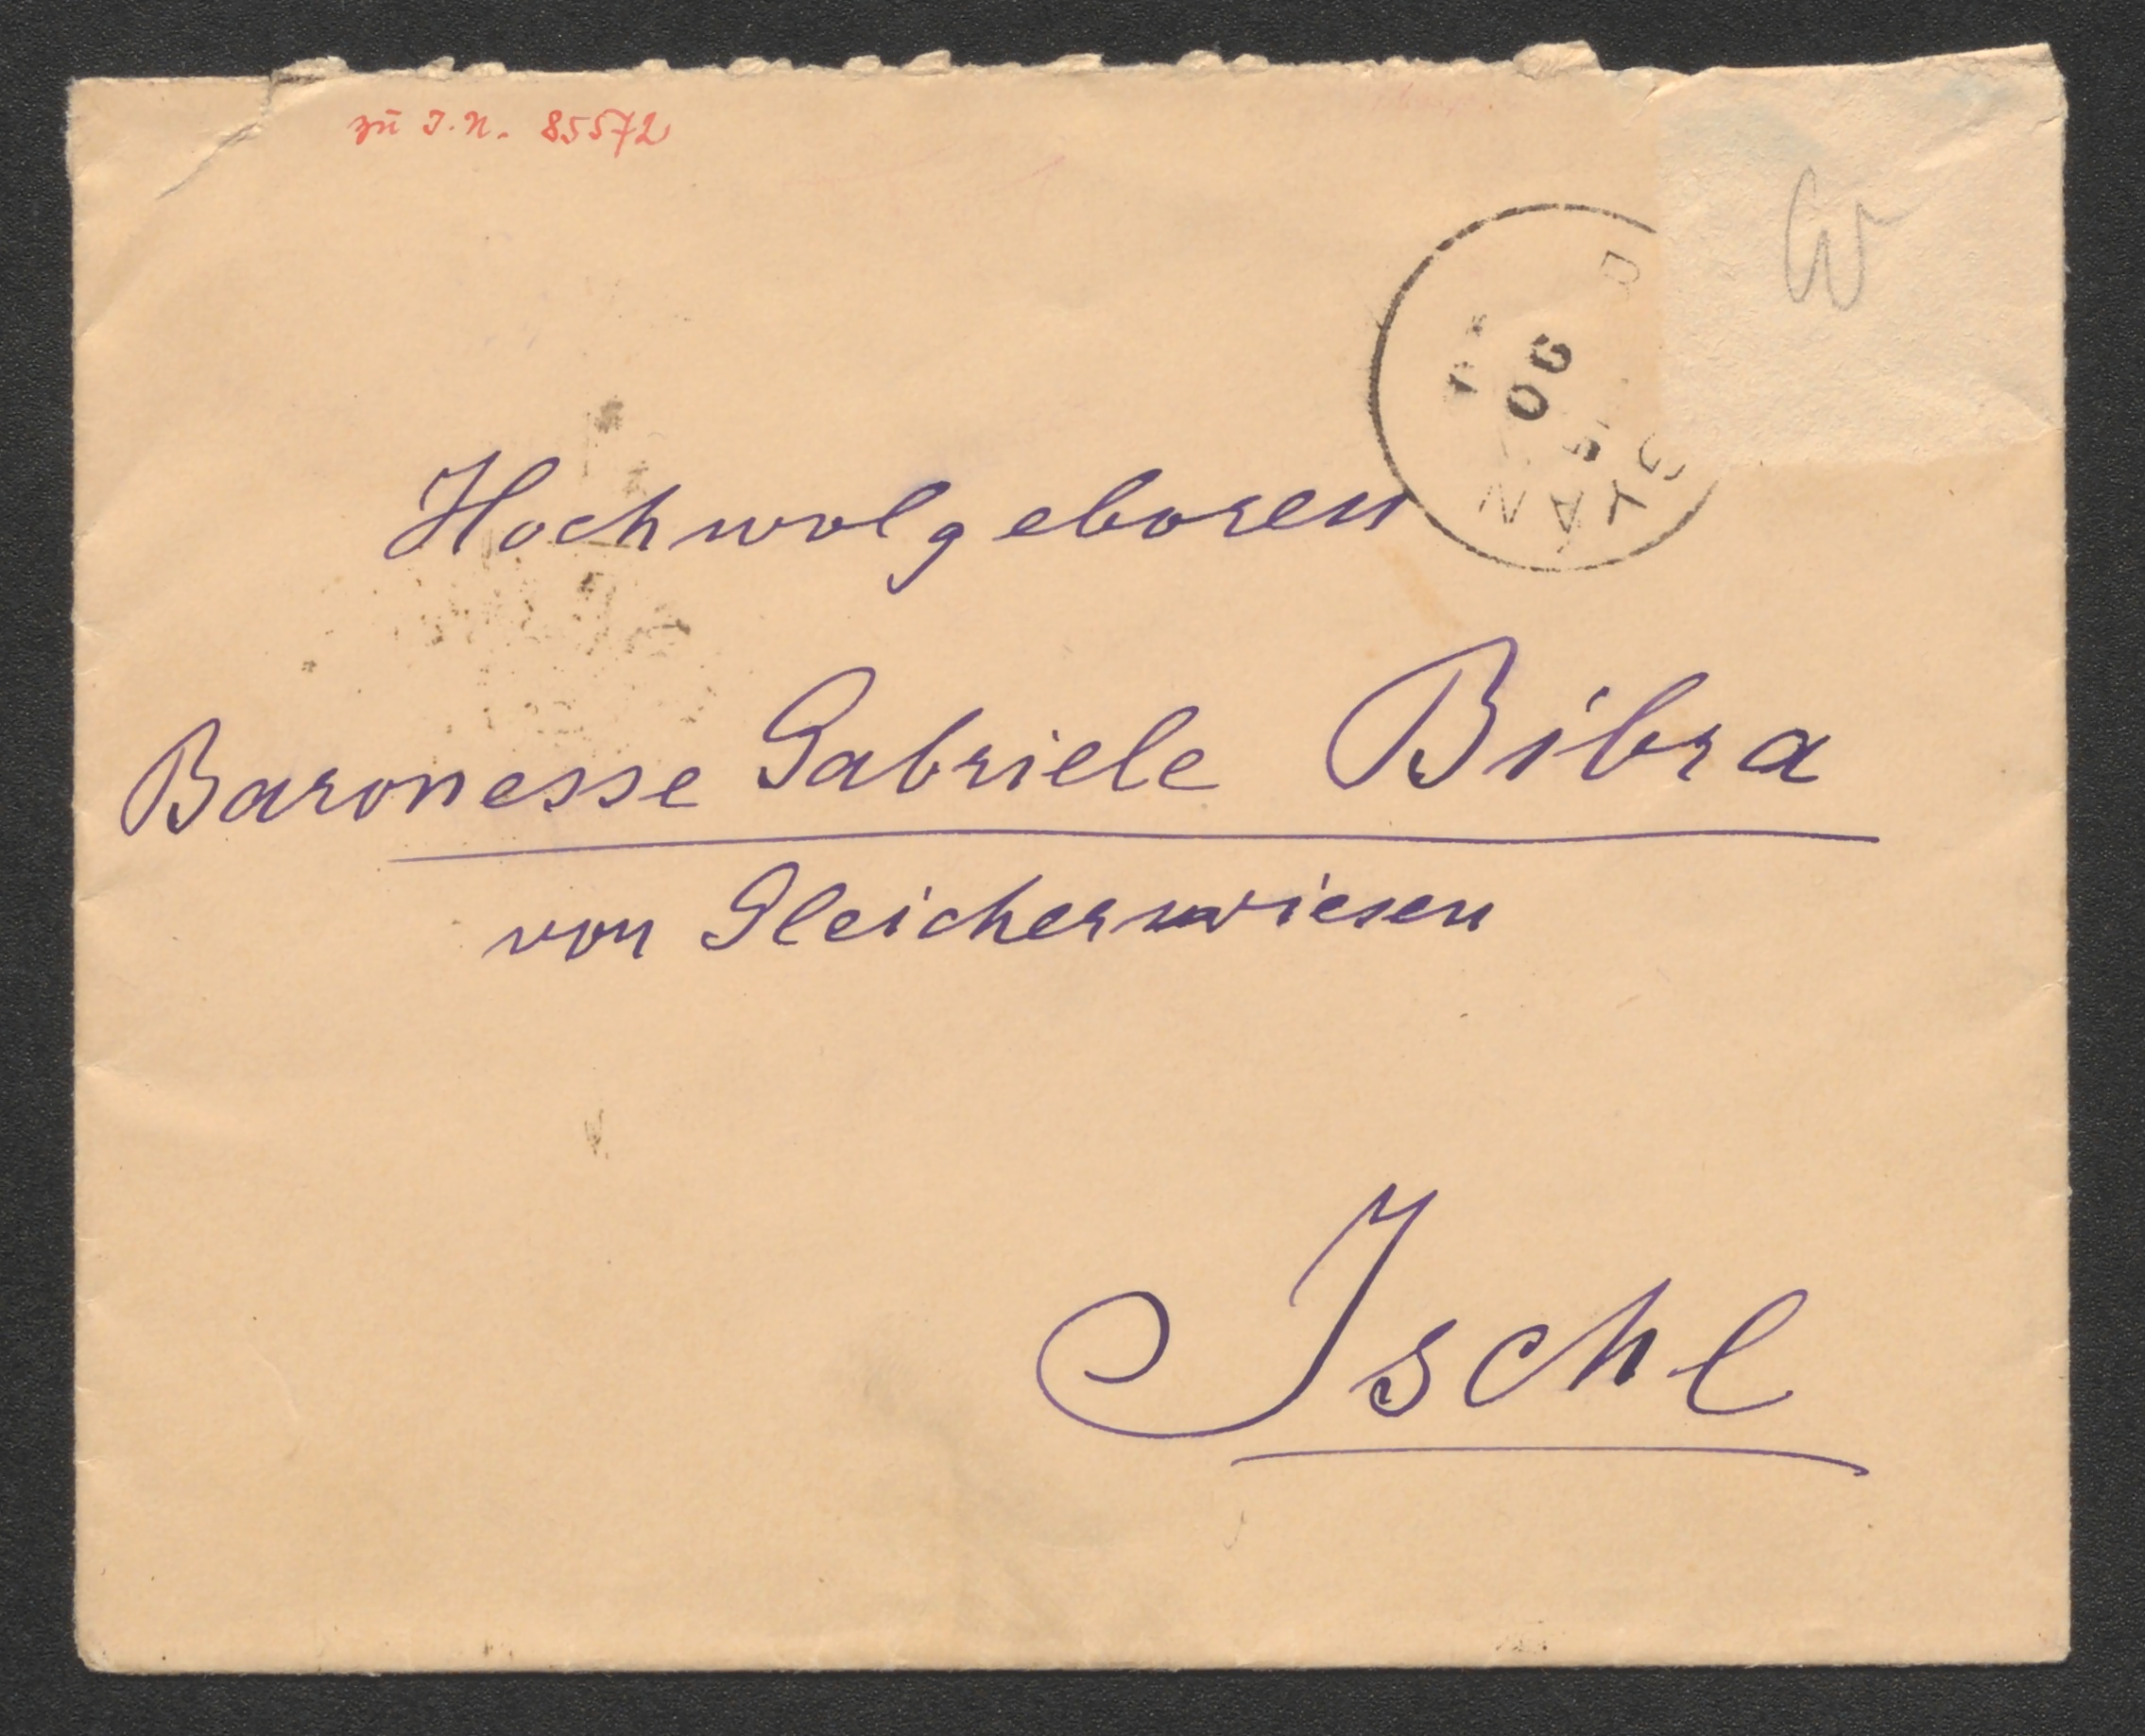 zu I. N. 85572
W
90
Hochwolgeboren
Baronesse Gabriele Bibra
von Gleicherwiesen
Ischl